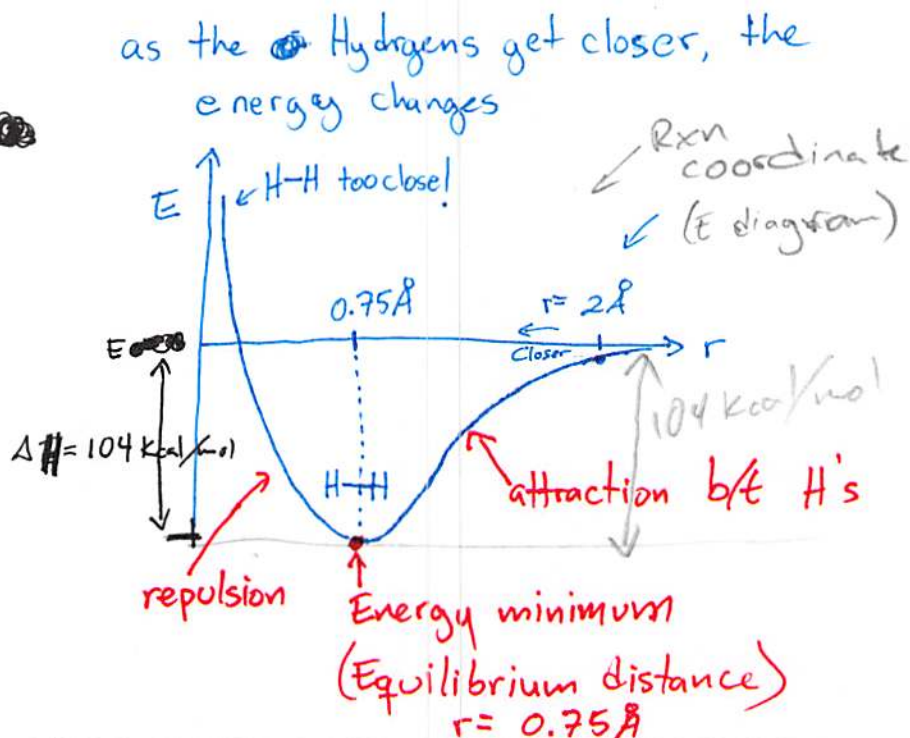 as the Hydrgens get closer, the
energy changes
Rxn
coordinate
(E diagram)
E
H-H too close!
0.75Å
r= 2Å
Closer
r
E
ΔH= 104 kcal/mol
104 kcal/mol
H-H
attraction b/t H's
repulsion
Energy minimum
(Equilibrium distance)
r= 0.75Å